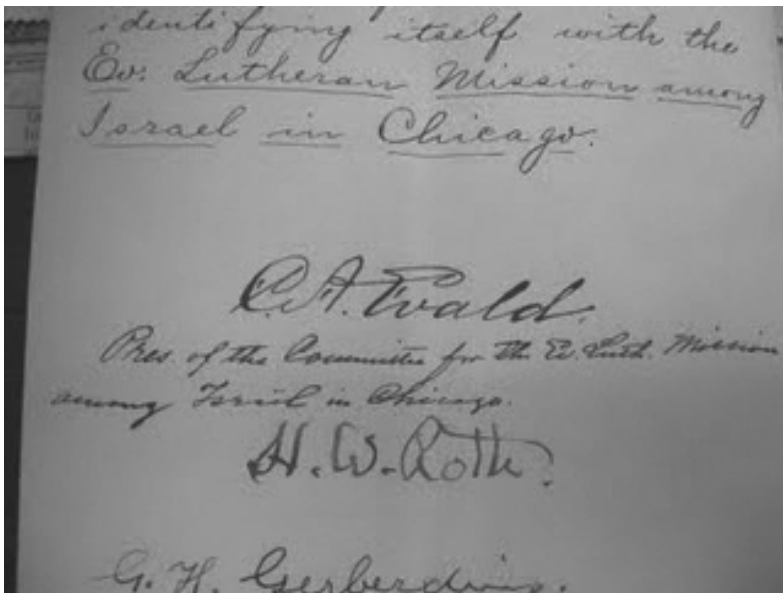 identifying itself with the
Ev. Lutheran Mission among
Israel in Chicago.
C. A. Evald.
Pres. of the Committee for the Ev. Luth. Mission
among Israel in Chicago.
H. W. Roth.
G. H. Gerberding.